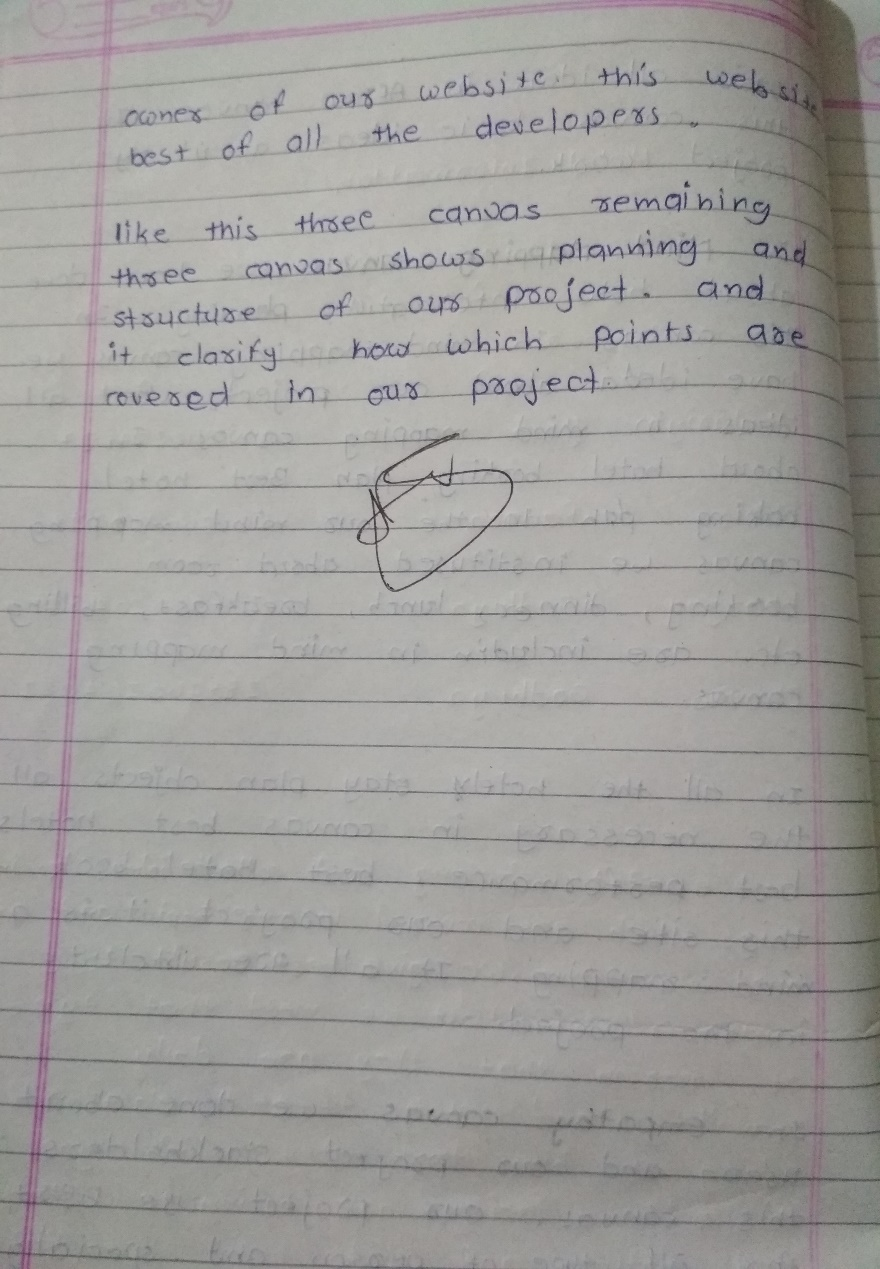 owner of our website. this website
best of all the developers.
like this three canvas remaining
three canvas shows planning and
structure of our project. and
it clarify how which points are
covered in our project.